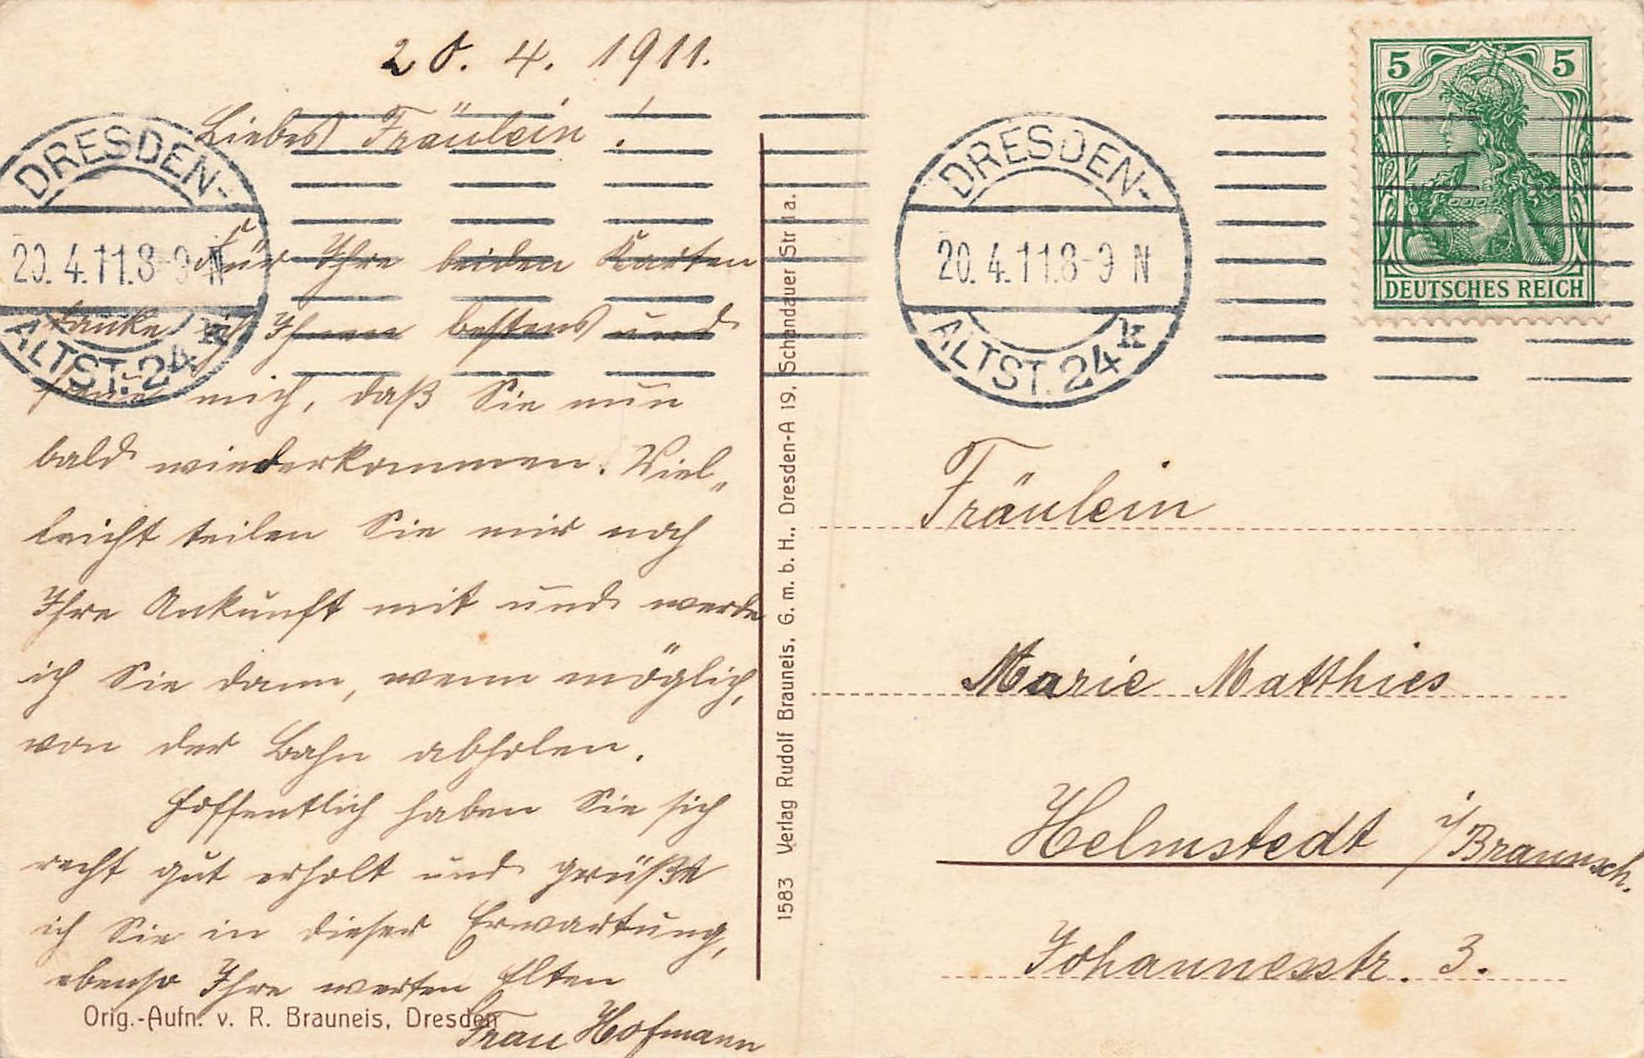 20. 4. 1911.
Liebes Fräulein!
Für Ihre beiden Karten
danke ich Ihnen bestens und
freue mich, daß Sie nun
bald wiederkommen. Viel„
leicht teilen Sie mir noch
Ihre Ankunft mit und werde
ich Sie dann, wenn möglich,
von der Bahn abholen.
Hoffentlich haben Sie sich
recht gut erholt und grüßt
ich Sie in dieser Erwartung,
ebenso Ihre werten Eltern
Frau Hofmann
Orig.-Aufn. v. R. Brauneis, Dresden
DRESDEN-
20.4.11.8-9 N
ALTST. 24 k
1583 Verlag Rudolf Brauneis, G. m. b. H., Dresden-A 19, Schandauer Str. 1a.
DRESDEN-
20.4.11.8-9 N
ALTST. 24 k
5 5
DEUTSCHES REICH
Fräulein
Marie Matthies
Helmstedt i/Braunsch.
Johannesstr. 3.